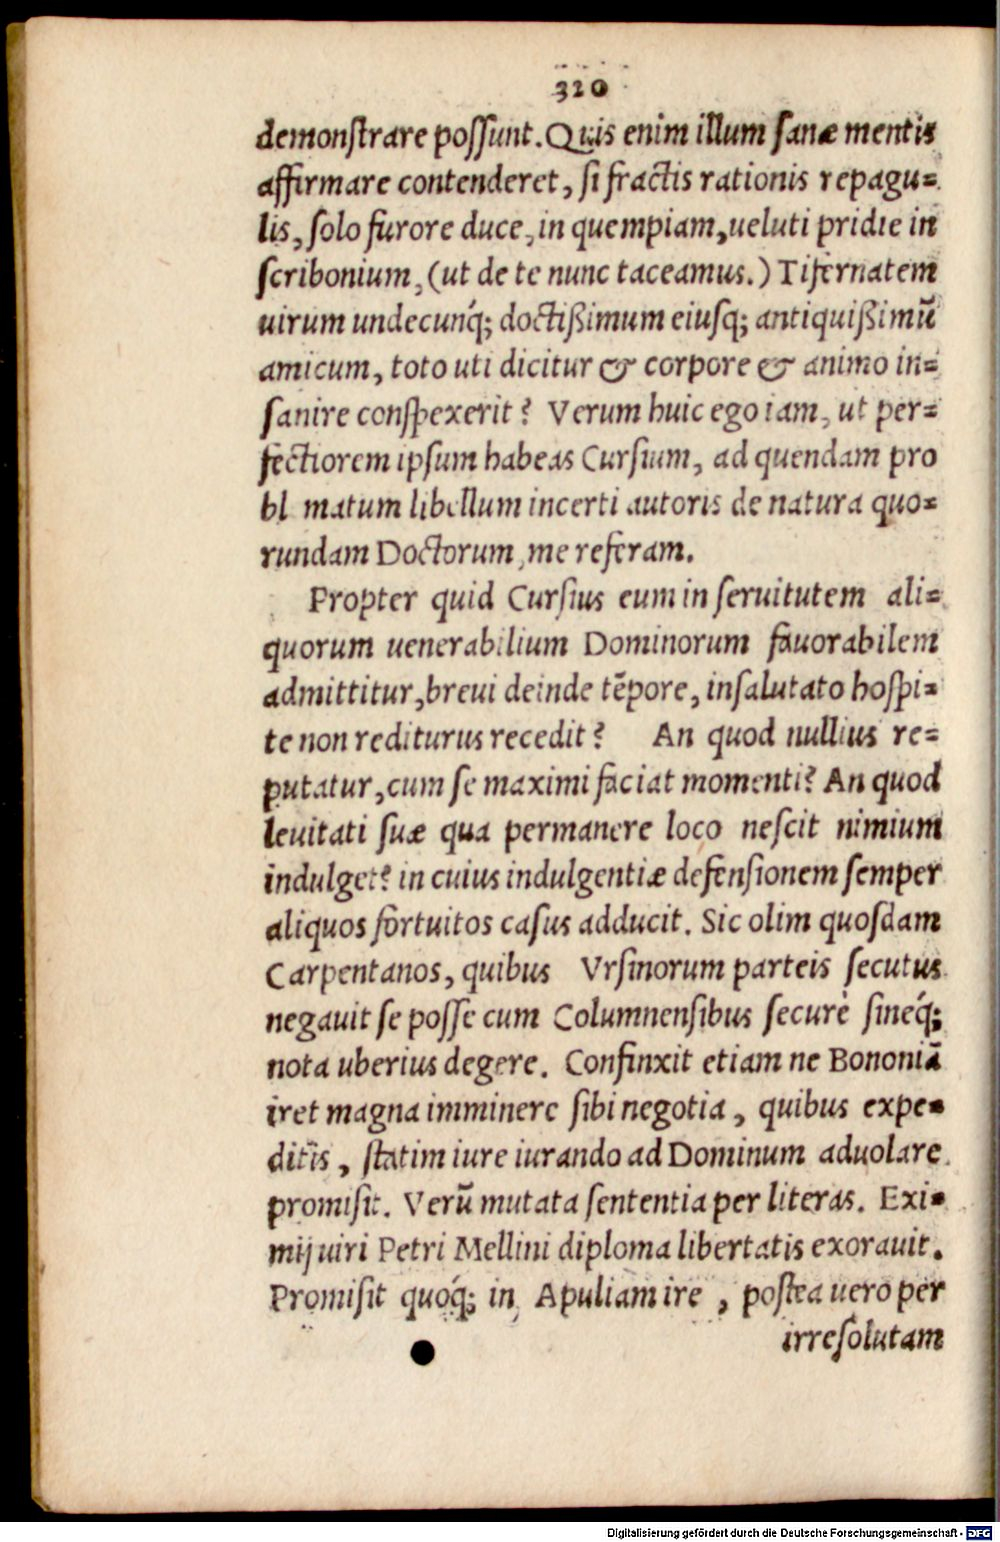 320
demonſtrare poſſunt. Quis enim illum ſanæ mentis
affirmare contenderet, ſi fractis rationis repagu=
lis, ſolo furore duce, in quempiam, ueluti pridie in
ſcribonium, (ut de te nunc taceamus.) Tifernatem
uirum undecunq́; doctißimum eiuſq; antiquißimū
amicum, toto uti dicitur & corpore & animo in=
ſanire conſpexerit? Verum huic ego iam, ut per=
fectiorem ipſum habeas Curſium, ad quendam pro
bl matum libellum incerti autoris de natura quo=
rundam Doctorum, me referam.
Propter quid Curſius eum in ſeruitutem ali=
quorum uenerabilium Dominorum fauorabilem
admittitur, breui deinde tēpore, inſalutato hoſpi=
te non rediturus recedit? An quod nullius re=
putatur, cum ſe maximi faciat momenti? An quod
leuitati ſuæ qua permanere loco neſcit nimium
indulget? in cuius indulgentiæ defenſionem ſemper
aliquos fortuitos caſus adducit. Sic olim quoſdam
Carpentanos, quibus Vrſinorum parteis ſecutus
negauit ſe poſſe cum Columnenſibus ſecurè ſineq́;
nota uberius degere. Confinxit etiam ne Bononiā
iret magna imminere ſibi negotia, quibus expe=
ditis, ſtatim iure iurando ad Dominum aduolare
promiſit. Verū mutata ſententia per literas. Exi=
mij uiri Petri Mellini diploma libertatis exorauit.
Promiſit quoq́; in Apuliam ire, poſtea uero per
irreſolutam
Digitalisierung gefördert durch die Deutsche Forschungsgemeinschaft - DFG